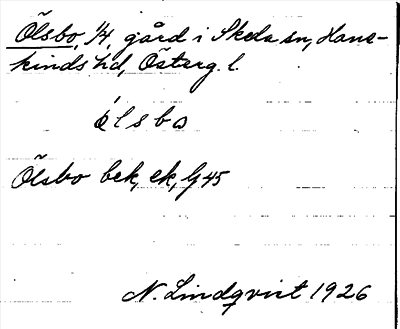 Ölsbo, 1/4, gård i Skeda sn, Hane-
kinds hd, Österg. l.
ó̗lsbo
Ölsbo bek, ek, G45
N. Lindqvist 1926